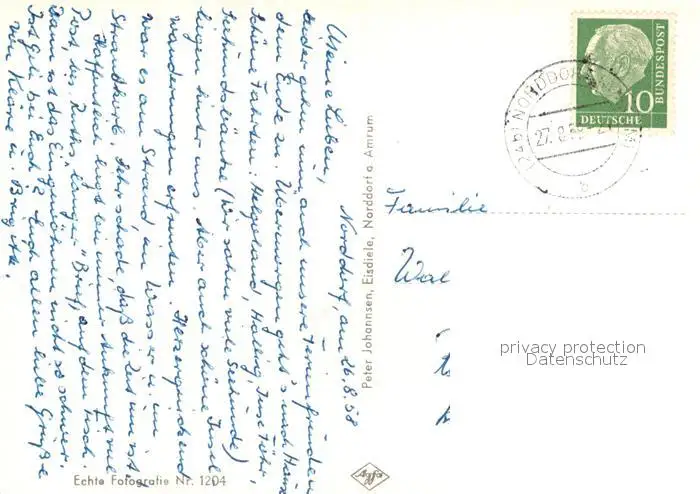 Norddorf, am 26.8.58
Meine Lieben,
leider gehen nun auch unsere Ferienfreuden
dem Ende zu. Übermorgen geht's nach Hause.
Schöne Fahrten: Helgoland, Hallig, Insel Föhr,
Seehundsbänke (wir sahen viele Seehunde)
liegen hinter uns. Aber auch schöne Insel
wanderungen erfreuten. Herzerquickend
war es am Strand im Wasser u. im
Strandkorb. Sehr schade, daß die Zeit um ist.
Hoffentlich liegt bei unserer Ankunft viel
Post, bes. Ruths langer "Brief", auf dem Tisch.
Dann ist das Eingewöhnen nicht so schwer.
Euch allen liebe Grüße
von Kläre u. Brigitte.
Peter Johannsen, Eisdiele, Norddorf a Amrum
Echte Fotografie Nr. 1204
Agfa
DEUTSCHE
BUNDESPOST
10
(24b) NORDDORF
27.8.58
b
Familie
Wal
privacy protection
Datenschutz